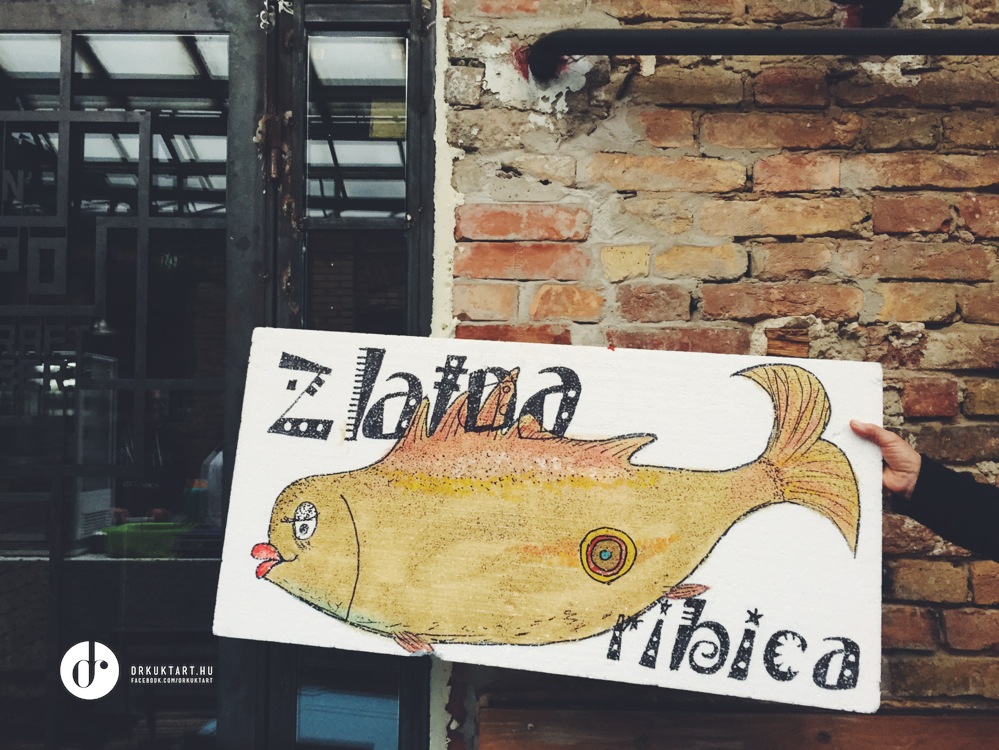 Zlatna
ribica
DRKUKTART.HU
FACEBOOK.COM/DRKUKTART